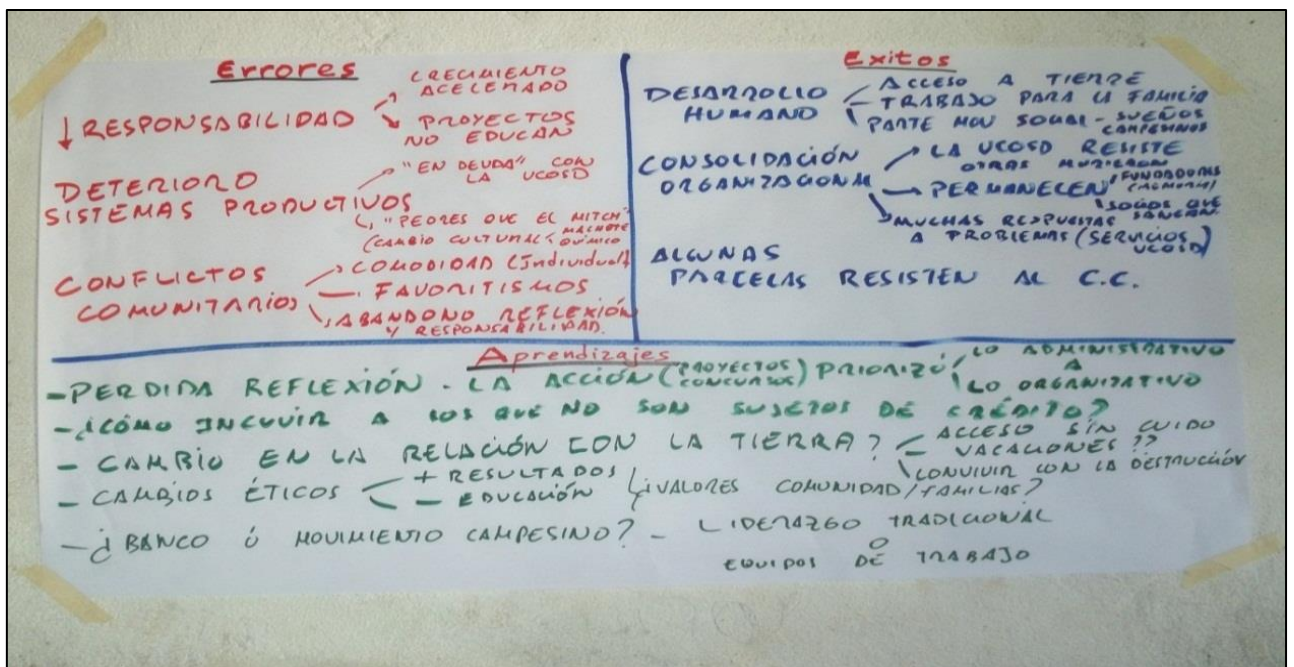 Errores
↓ RESPONSABILIDAD
CRECIMIENTO
ACELERADO
PROYECTOS
NO EDUCAN
DETERIORO
SISTEMAS PRODUCTIVOS
"EN DEUDA" CON
LA UCOSD
"PEORES QUE EL MITCH"
(CAMBIO CULTURAL < MACHETE
QUÍMICO
CONFLICTOS
COMUNITARIOS
COMODIDAD (Individual)
FAVORITISMOS
ABANDONO REFLEXIÓN
Y RESPONSABILIDAD.
Exitos
DESARROLLO
HUMANO
ACCESO A TIERRA
TRABAJO PARA LA FAMILIA
PARTE MOV SOCIAL - SUEÑOS
CAMPESINOS
CONSOLIDACIÓN
ORGANIZACIONAL
LA UCOSD RESISTE
OTRAS MURIERON
PERMANECEN
FUNDADORES
(MEMORIA)
SOCIOS QUE
MUCHAS RESPUESTAS
A PROBLEMAS (SERVICIOS
UCOSD)
ALGUNAS
PARCELAS RESISTEN AL C.C.
Aprendizajes
- PERDIDA REFLEXIÓN - LA ACCIÓN (PROYECTOS
CONCURSOS) PRIORIZÓ LO ADMINISTRATIVO
A
LO ORGANIZATIVO
- ¿CÓMO INCLUIR A LOS QUE NO SON SUJETOS DE CRÉDITO?
- CAMBIO EN LA RELACIÓN CON LA TIERRA?
ACCESO SIN CUIDO
VACACIONES ??
CONVIVIR CON LA DESTRUCCIÓN
- CAMBIOS ÉTICOS
+ RESULTADOS
- EDUCACIÓN
¿VALORES COMUNIDAD/FAMILIAS?
- ¿BANCO Ó MOVIMIENTO CAMPESINO? - LIDERAZGO TRADICIONAL
O
EQUIPOS DE TRABAJO